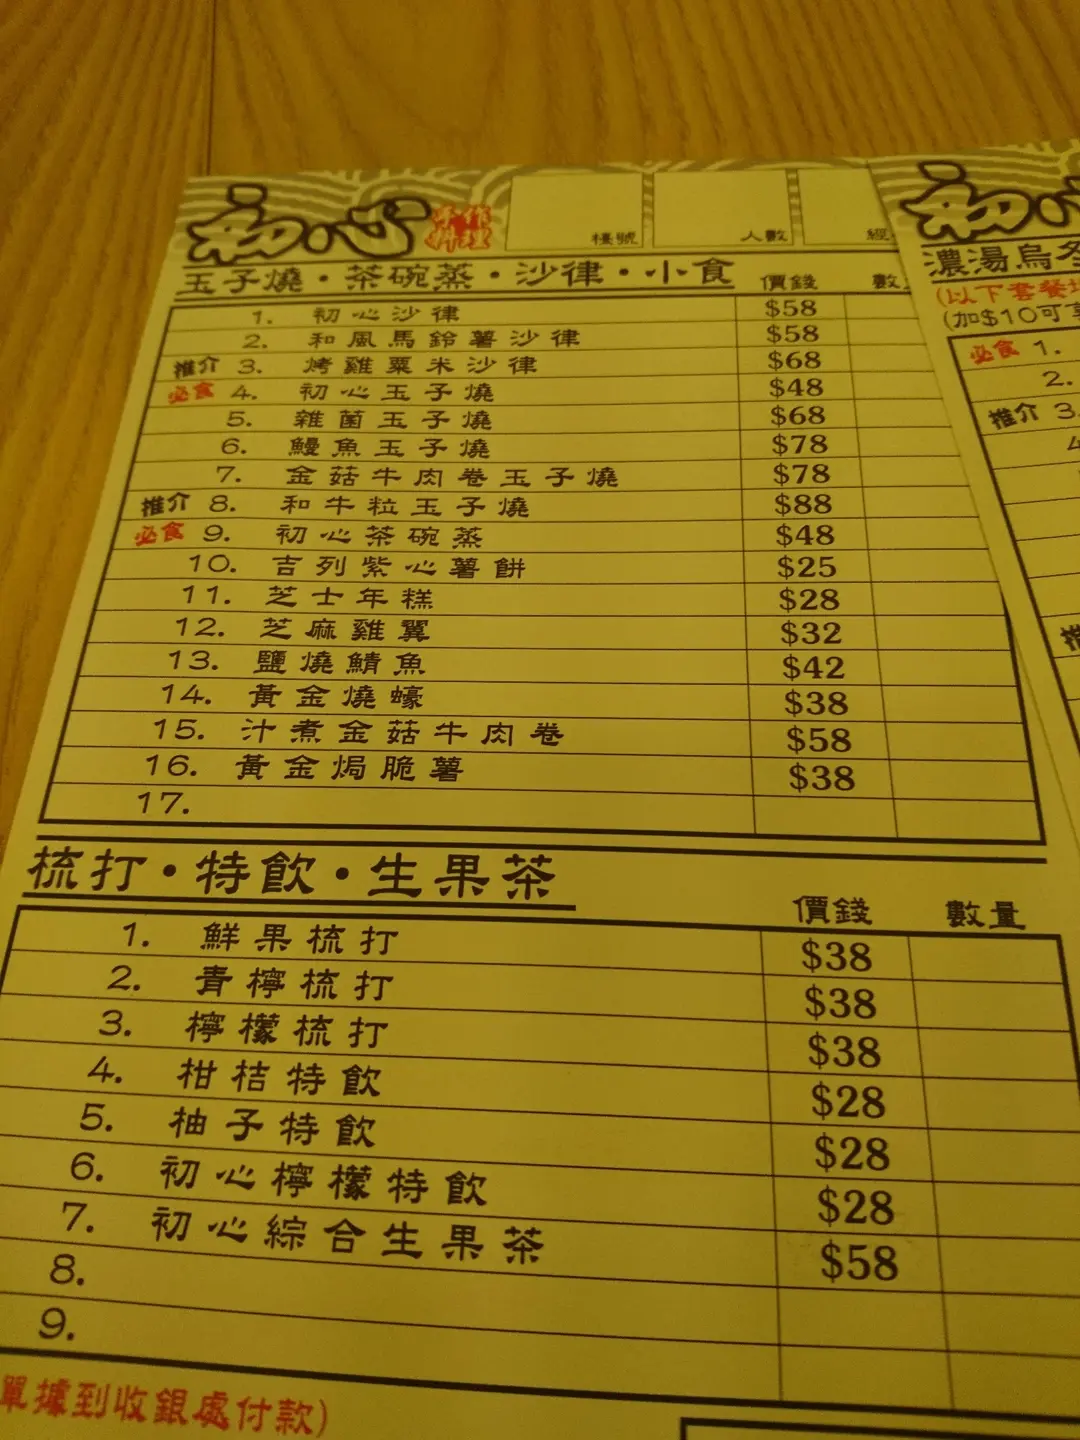 初心 手作料理
檯號 人數 經
玉子燒・茶碗蒸・沙律・小食 價錢 數
1. 初心沙律 $58
2. 和風馬鈴薯沙律 $58
推介 3. 烤雞粟米沙律 $68
必食 4. 初心玉子燒 $48
5. 雜菌玉子燒 $68
6. 鰻魚玉子燒 $78
7. 金菇牛肉卷玉子燒 $78
推介 8. 和牛粒玉子燒 $88
必食 9. 初心茶碗蒸 $48
10. 吉列紫心薯餅 $25
11. 芝士年糕 $28
12. 芝麻雞翼 $32
13. 鹽燒鯖魚 $42
14. 黃金燒蠔 $38
15. 汁煮金菇牛肉卷 $58
16. 黃金焗脆薯 $38
17.
梳打・特飲・生果茶 價錢 數量
1. 鮮果梳打 $38
2. 青檸梳打 $38
3. 檸檬梳打 $38
4. 柑桔特飲 $28
5. 柚子特飲 $28
6. 初心檸檬特飲 $28
7. 初心綜合生果茶 $58
8.
9.
單據到收銀處付款)
初心
濃湯烏冬
(以下套餐
(加$10可
必食 1.
2.
推介 3.
4